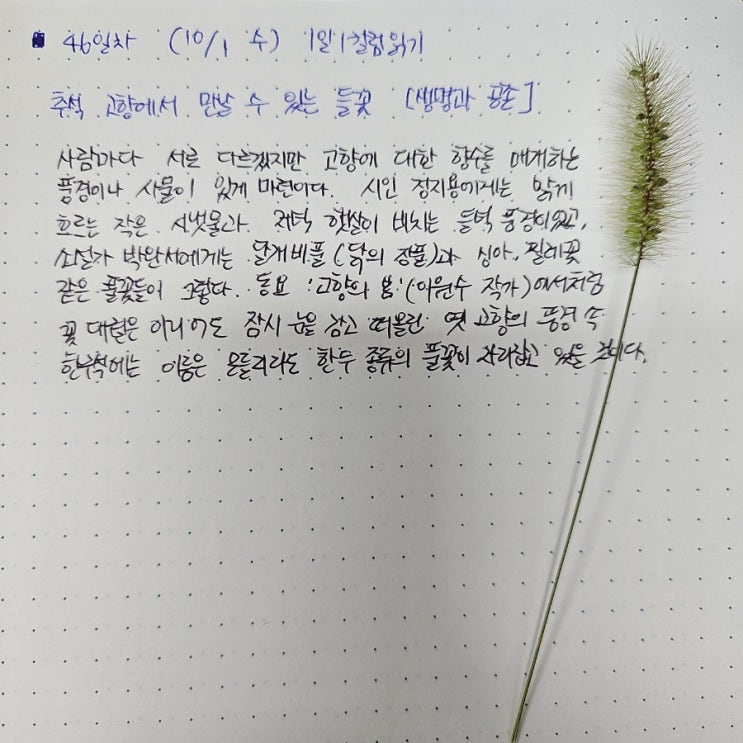 46일차 (10/1 수) 1일1칼럼읽기
추석 고향에서 만날 수 있는 들꽃 [생명과 공존]
사람마다 서로 다르겠지만 고향에 대한 향수를 매개하는
풍경이나 사물이 있게 마련이다. 시인 정지용에게는 맑게
흐르는 작은 시냇물과 저녁 햇살이 비치는 들녘 풍경이었고,
소설가 박완서에게는 달개비풀(닭의 장풀)과 싱아, 찔레꽃
같은 풀꽃들이 그렇다. 동요 '고향의 봄'(이원수 작가)에서처럼
꽃 대궐은 아니어도 잠시 눈을 감고 떠올린 옛 고향의 풍경 속
한구석에는 이름은 모를지라도 한두 종류의 풀꽃이 자리잡고 있을 것이다.